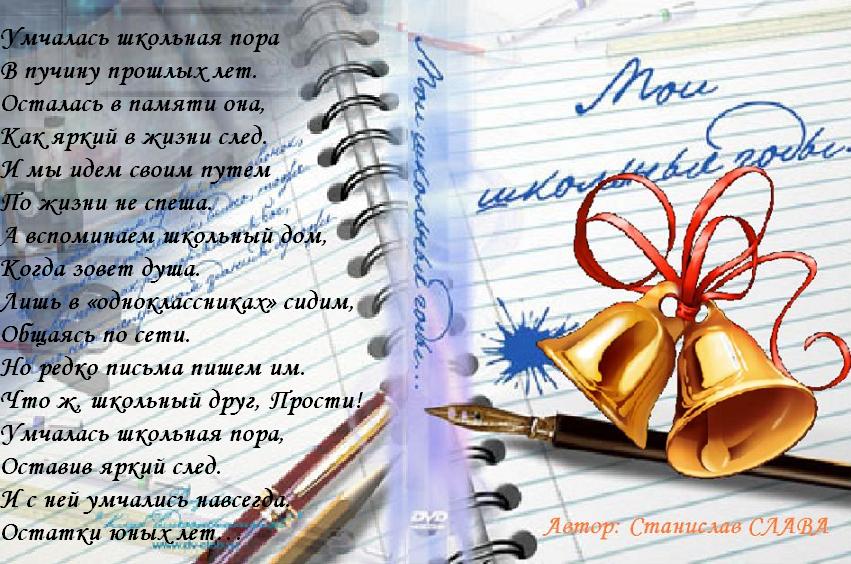 Умчалась школьная пора
В пучину прошлых лет.
Осталась в памяти она,
Как яркий в жизни след.
И мы идем своим путем
По жизни не спеша.
А вспоминаем школьный дом,
Когда зовет душа.
Лишь в «одноклассниках» сидим,
Общаясь по сети.
Но редко письма пишем им.
Что ж, школьный друг, Прости!
Умчалась школьная пора,
Оставив яркий след.
И с ней умчались навсегда.
Остатки юных лет...
Мои школьные годы...
DVD
Мои
школьные годы...
Автор: Станислав СЛАВА